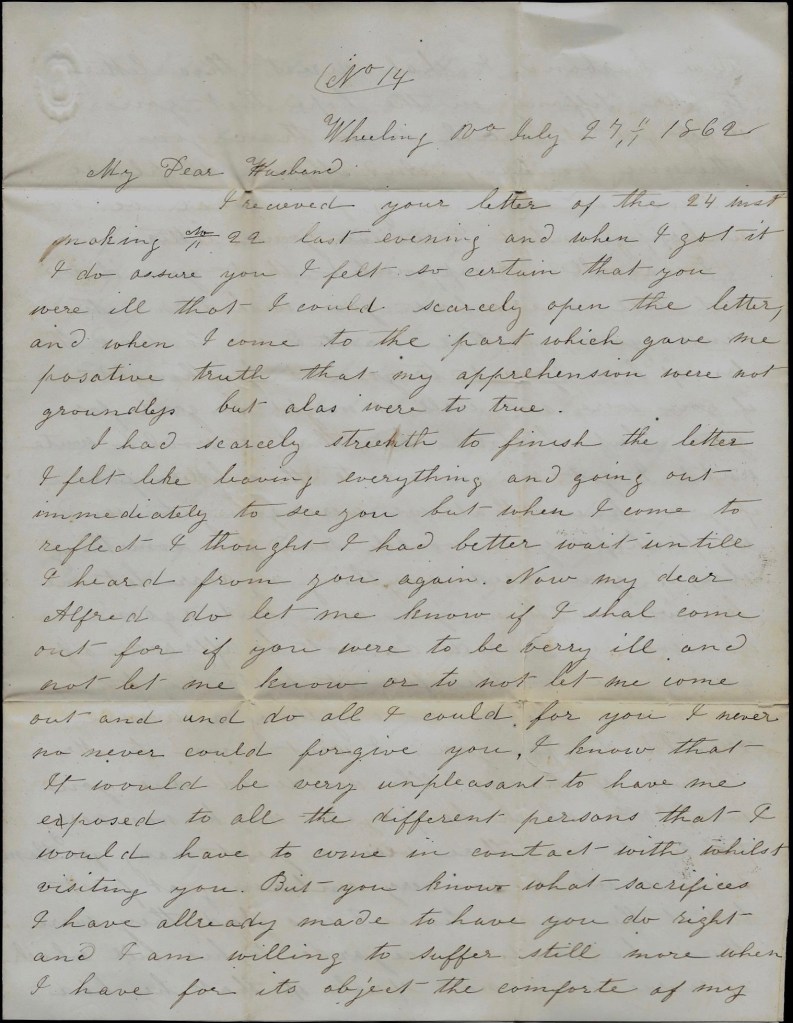 No 14
Wheeling Va July 27, 1862
My Dear Husband
I recieved your letter of the 24 inst
making No 22 last evening and when I got it
I do assure you I felt so certain that you
were ill that I could scarcely open the letter,
and when I come to the part which gave me
posative truth that my apprehension were not
groundless but alas were to true.
I had scarcely strenth to finish the letter
I felt like leaving everything and going out
immediately to see you but when I come to
reflect I thought I had better wait untill
I heard from you again. Now my dear
Alfred do let me know if I shal come
out for if you were to be verry ill and
not let me know or to not let me come
out and and do all I could for you I never
no never could forgive you, I know that
It would be verry unpleasant to have me
exposed to all the different persons that I
would have to come in contact with whilst
visiting you. But you know what sacrifices
I have allready made to have you do right
and I am willing to suffer still more when
I have for its object the comforte of my